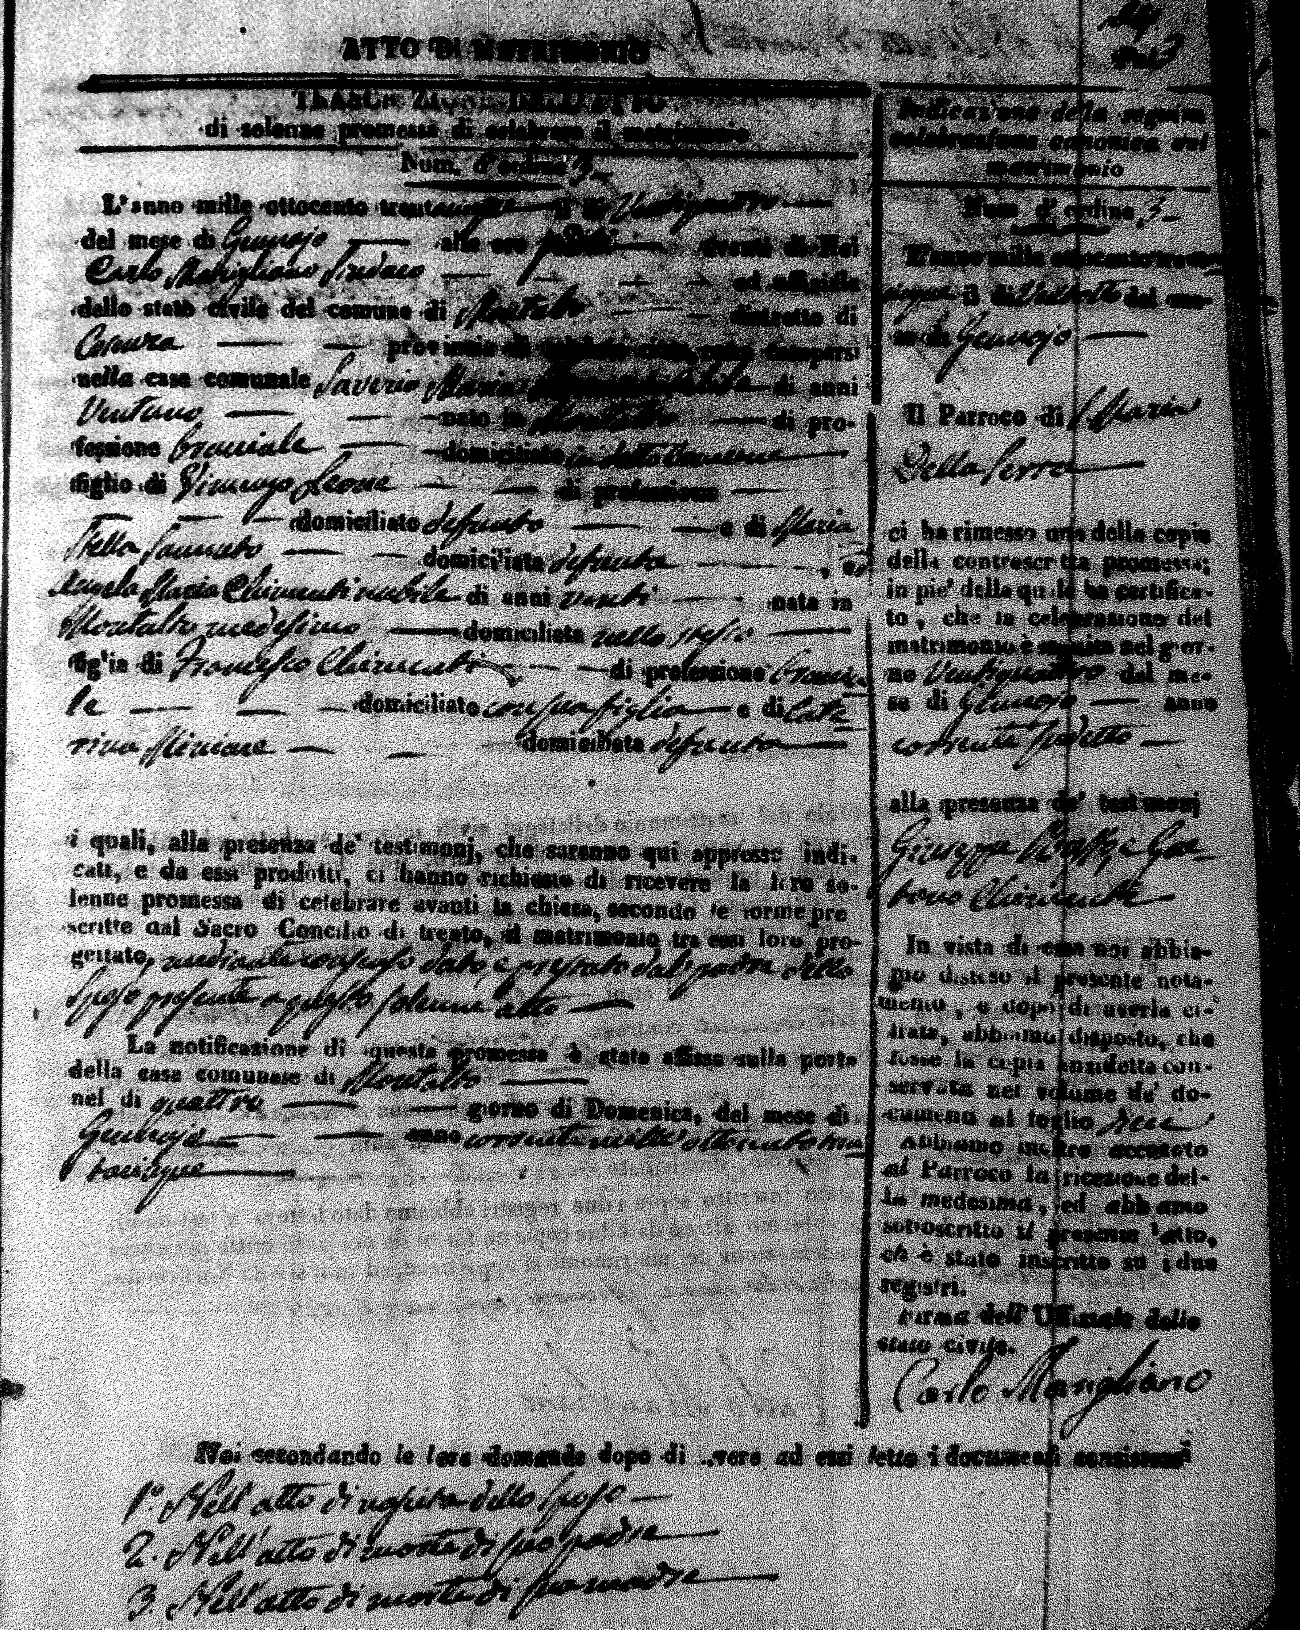 ATTO DI MATRIMONIO
TRASCRIZIONE DELL'ATTO
di solenne promessa di celebrare il matrimonio
Num. d'ordine 3
L'anno mille ottocento trentacinque il dì Ventiquattro
del mese di Gennajo alle ore avanti di Noi
Carlo Marigliano Sindaco ed uffiziale
dello stato civile del comune di Montalto distretto di
Cosenza provincia di comparsi
nella casa comunale Saverio Maria di anni
Ventuno nato in Montalto di pro-
fessione bracciale domiciliato in detto Comune
figlio di Vincenzo Leone di professione
domiciliato defunto e di Maria
Stella Sannuto domiciliata defunta , ed
Angela Maria Chimenti nubile di anni venti nata in
Montalto medesimo domiciliata nello stesso
figlia di Francesco Chimenti di professione braccia
le domiciliato con sua figlia e di Cate
rina domiciliata defunta
i quali, alla presenza de' testimonj, che saranno qui appresso indi-
cati, e da essi prodotti, ci hanno richiesto di ricevere la loro so-
lenne promessa di celebrare avanti la chiesa, secondo le forme pre
scritte dal Sacro Concilio di trento, il matrimonio tra essi loro pro-
gettato, mediante consenso dato e prestato dal padre della
Sposa presente a questo solenne atto
La notificazione di questa promessa è stata affissa sulla porta
della casa comunale di Montalto
nel dì quattro giorno di Domenica, del mese di
Gennajo anno corrente mille ottocento tren
tacinque
Indicazione della seguita
celebrazione canonica del
matrimonio
Num. d'ordine 3
L'anno mille ottocento trenta
cinque il dì Ventotto del me-
se di Gennajo
Il Parroco di S. Maria
Della Serra
ci ha rimesso una della copia
della controscritta promessa;
in piè della quale ha certifica-
to, che la celebrazione del
matrimonio è seguita nel gior-
no Ventiquattro del me-
se di Gennajo anno
corrente suddetto
alla presenza de' testimonj
Giuseppe Gae-
tano Chimenti
In vista di essa noi abbia-
mo disteso il presente nota-
mento, e dopo di averla ci-
frata, abbiamo disposto, che
fosse la copia anzidetta con-
servata nel volume de' do-
cumenti al foglio
Abbiamo inoltre accusato
al Parroco la ricezione del-
la medesima, ed abbiamo
sottoscritto il presente atto,
ch'è stato inscritto su i due
registri.
Firma dell'Uffiziale dello
stato civile.
Carlo Marigliano
Noi secondando le loro domande dopo di avere ad essi letto i documenti consistenti
1° Nell'atto di nascita dello Sposo
2. Nell'atto di morte di suo padre
3. Nell'atto di morte di sua madre